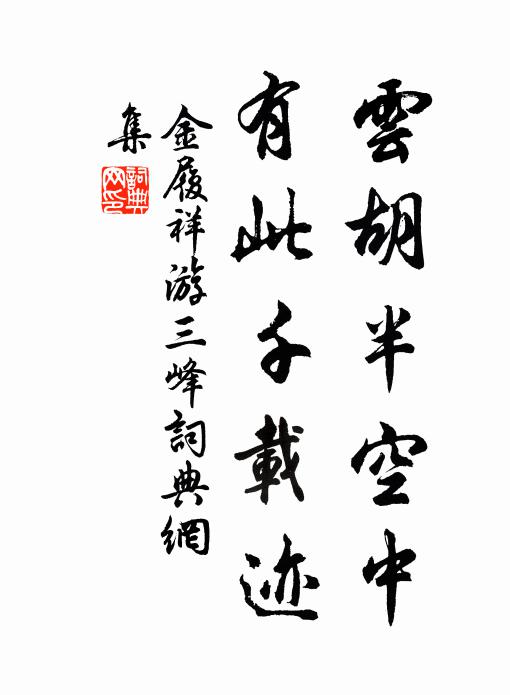 雲胡半空中
有此千載迹
金履祥游三峰詞典網
集
詞典網印